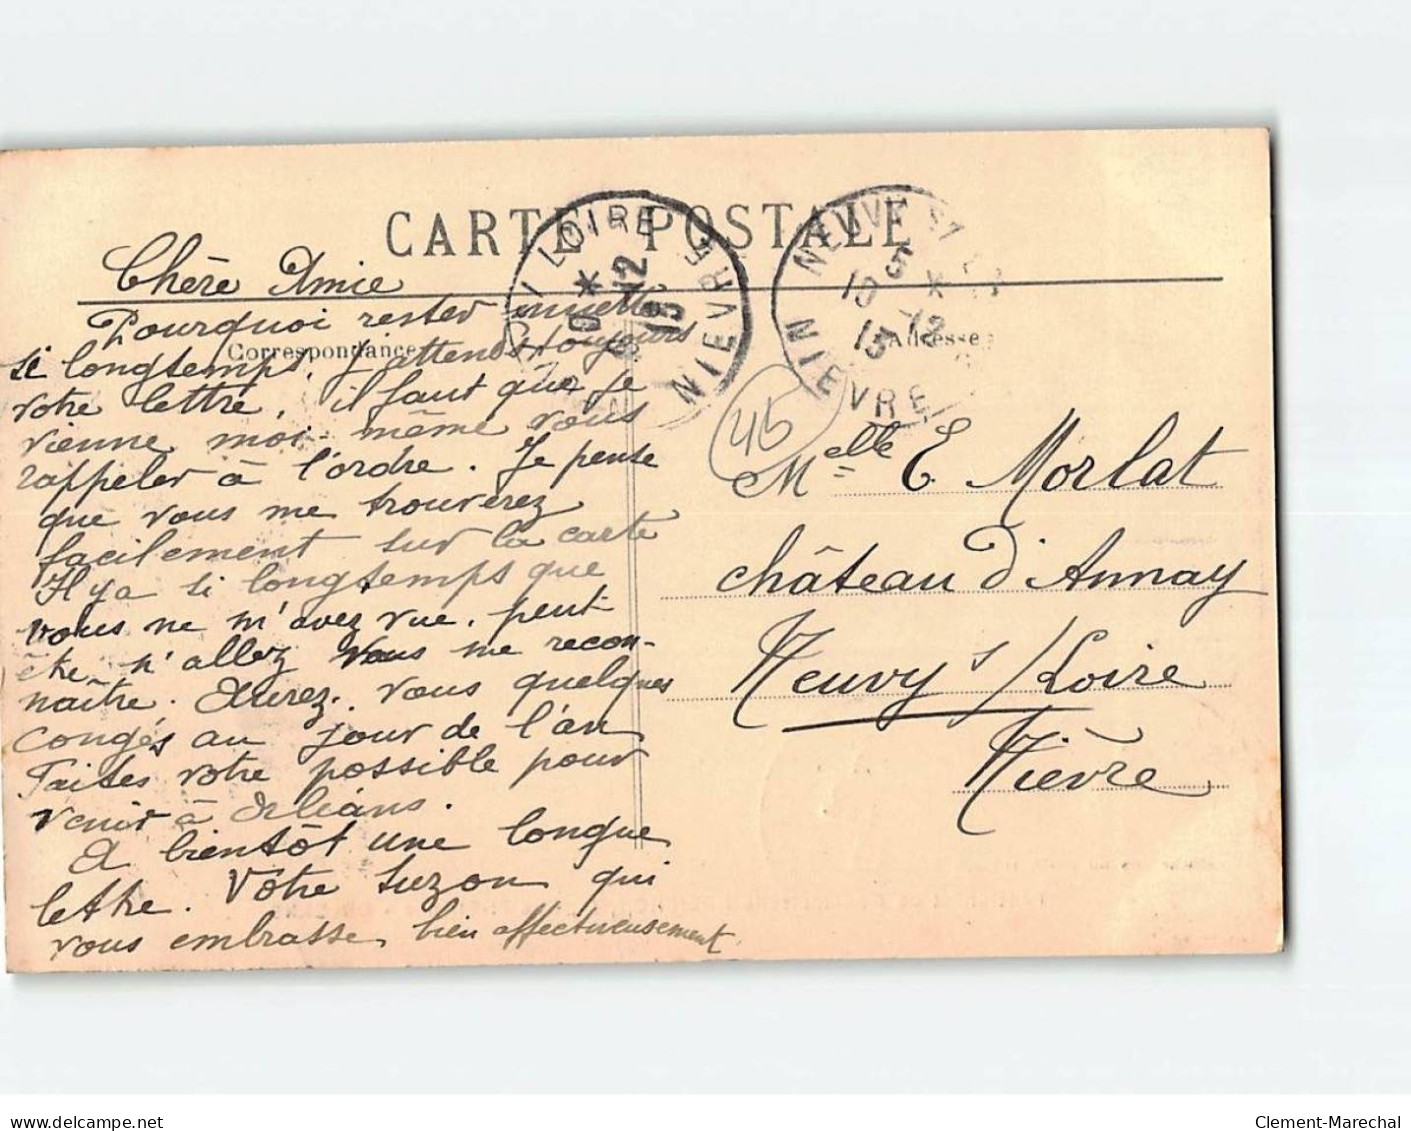 CARTE POSTALE
Correspondance
Adresse
Chère Amie
Pourquoi rester muette
si longtemps. J'attends toujours
votre lettre, il faut que je
vienne moi-même vous
rappeler à l'ordre. Je pense
que vous me trouverez
facilement sur la carte
Il y a si longtemps que
vous ne m'avez vue, peut-
être n'allez vous me recon-
naître. Aurez-vous quelques
congés au jour de l'an
Faites votre possible pour
venir à Orléans.
A bientôt une longue
lettre. Votre Suzon qui
vous embrasse bien affectueusement
LOIRE
NIEVRE
12
13
NEUVY St
NIEVRE
5 *
10 -12
13
45
Melle E. Morlat
château d'Annay
Neuvy s/Loire
Nièvre
delcampe.net
Clement-Marechal